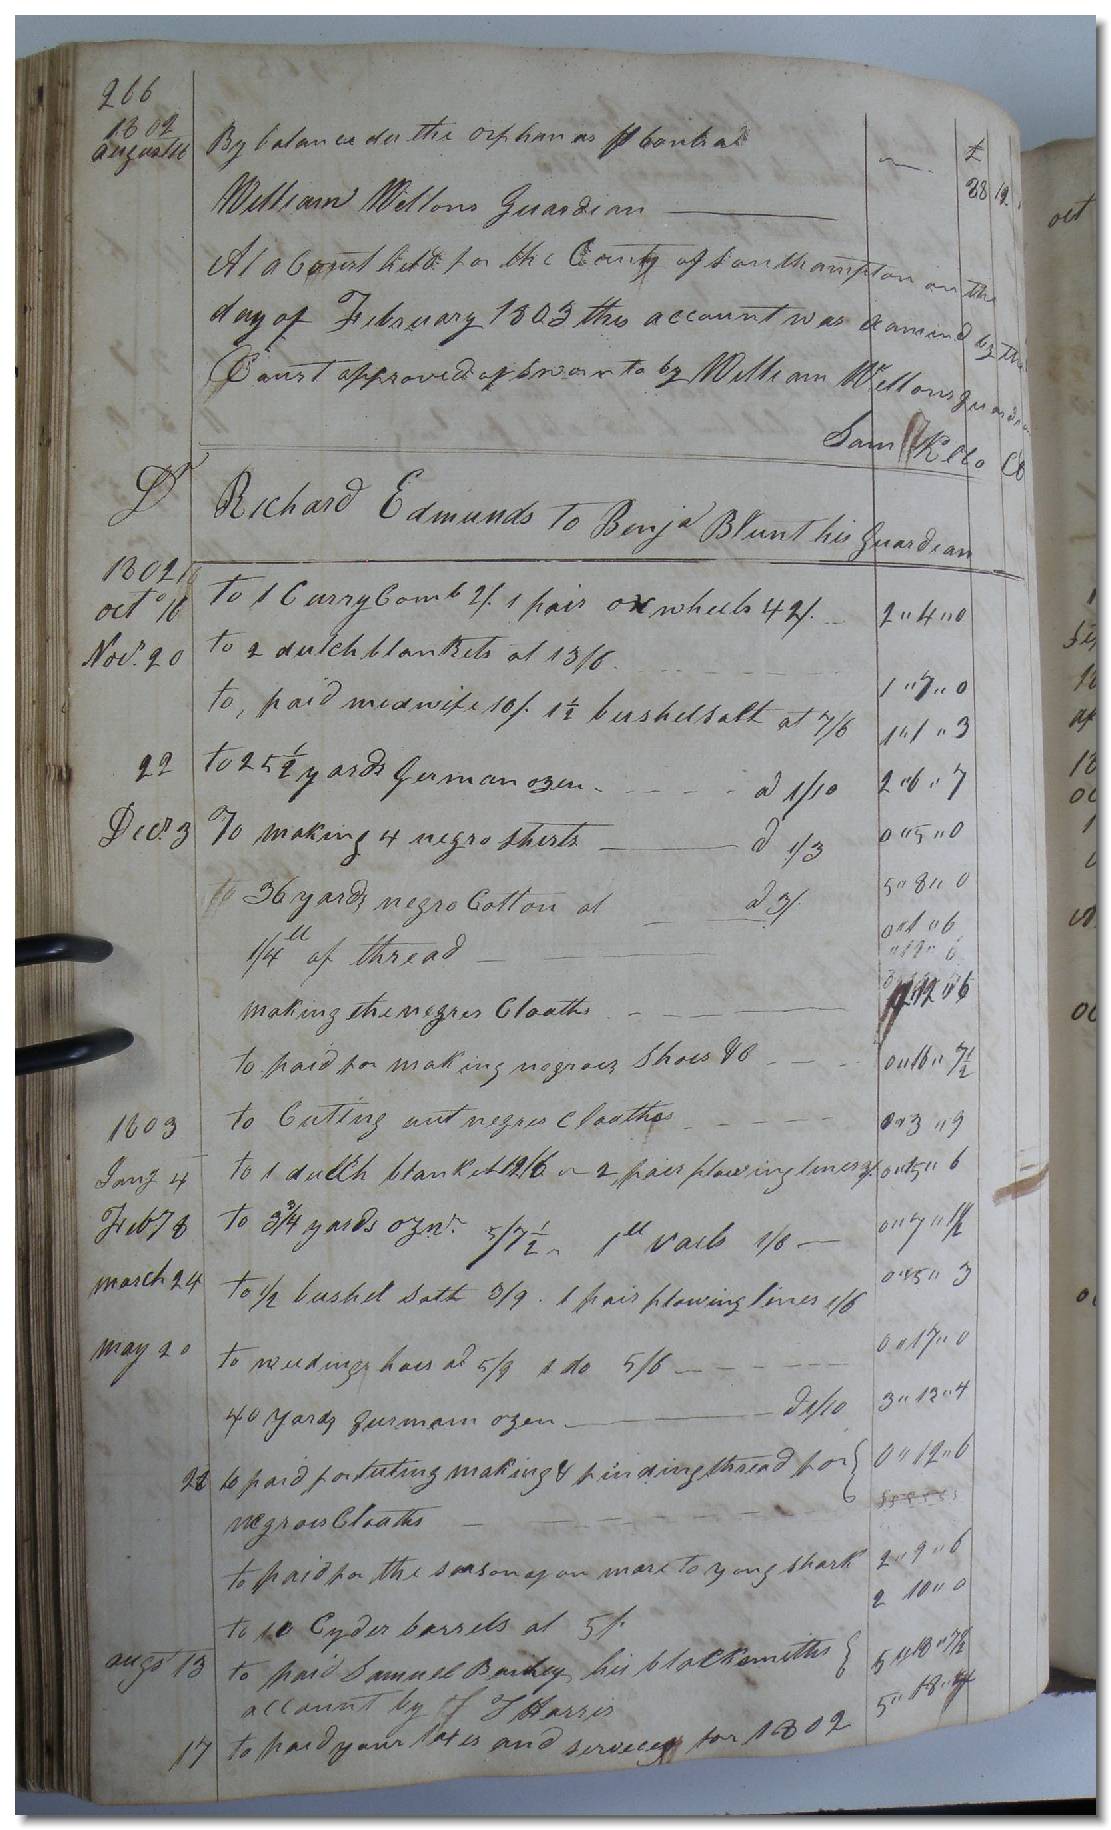 266
1802
August 16 By balance due the orphan as p Contra £
28 19
William Wellons Guardian
At a Court held for the County of Southampton on the
day of February 1803 this account was examined by the
Court approved of & sworn to by William Wellons guardian
Sam Kello Cl
Dr Richard Edmunds to Benja Blunt his Guardian
1802
octo 16 to 1 Curry Comb 2/. 1 pair ox wheels 42/. 2 " 4 " 0
Novr. 20 to 2 dutch blankets at 13/6 1 " 7 " 0
to paid midwife 10/. 1 1/2 bushel salt at 7/6 1 " 1 " 3
22 to 25 1/2 yards German ozen a 1/10 2 " 6 " 7
Decr. 3 To making 4 negro Sherts a 1/3 0 " 5 " 0
to 36 yards negro Cotton at a 3/. 5 " 8 " 0
1/4 ll of thread 0 " 1 " 6
" 12 " 6
making the negroes Cloaths " 12 " 6
to paid for making negroes Shoes &c 0 " 16 " 7 1/2
1803 to Cuting out negroes cloathes 0 " 3 " 9
Jany 4 to 1 dutch blanket 12/6 2 pair plowing lines 0 " 15 " 6
Feby 8 to 3 3/4 yards ozn. 5/7 1/2 1 ll 1/6 0 " 7 " 1 1/2
march 24 to 1/2 bushel Salt 3/9. 1 pair plowing lines 1/6 0 " 5 " 3
may 20 to weeding hoes at 5/9 1 do 5/6 0 " 17 " 0
40 Yards German ozen a 1/10 3 " 13 " 4
22 to paid for cuting making & finding thread for 0 " 12 " 6
negroes Cloaths
to paid for the season of on mare to yong Shark 2 " 9 " 6
to 10 Cyder barrels at 5/. 2 10 " 0
augst 13 to paid Samuel his blacksmiths 5 " 18 " 7 1/2
account by J Harris 5 " 18 " 4
17 to paid your taxes and for 1802